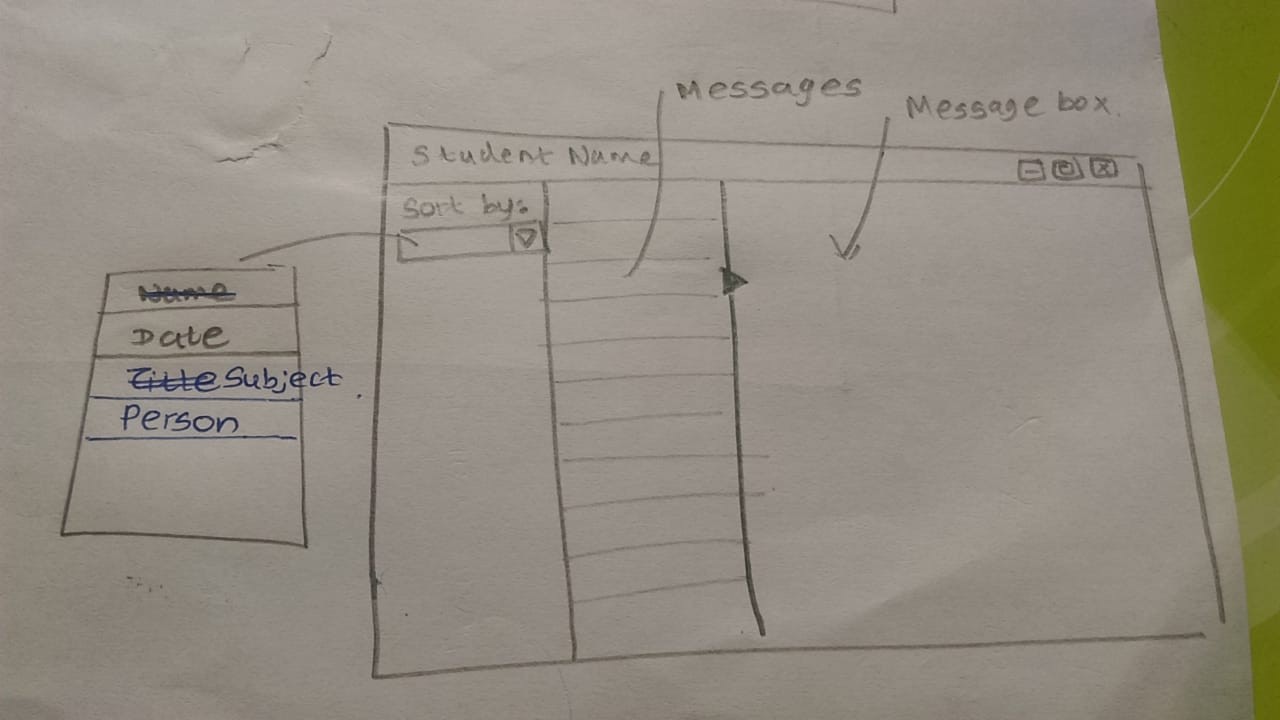 Messages
Message box.
Student Name
Sort by:
Name
Date
Title Subject
Person